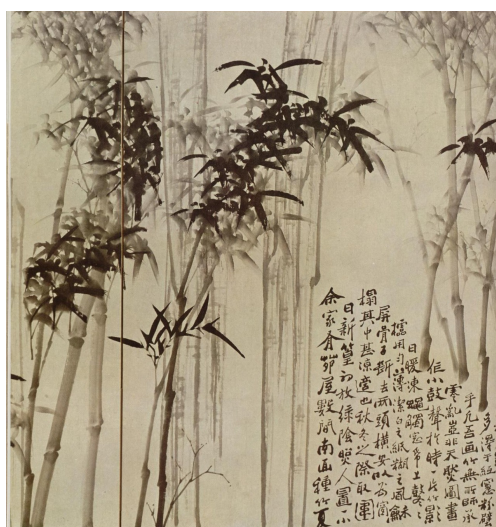 余家有茆屋數間南面種竹夏
日新篁初放綠陰照人置一小
榻其中甚涼適也秋冬之際取圍
屏骨子斷去兩頭橫安以為窗
櫺用勻薄潔白之紙糊之風龢
日暖凍蠅觸窗紙上鼕鼕
作小鼓聲於時一片竹影
零亂豈非天然圖畫
乎凡吾畫竹無所師承
多得于紙窗粉壁